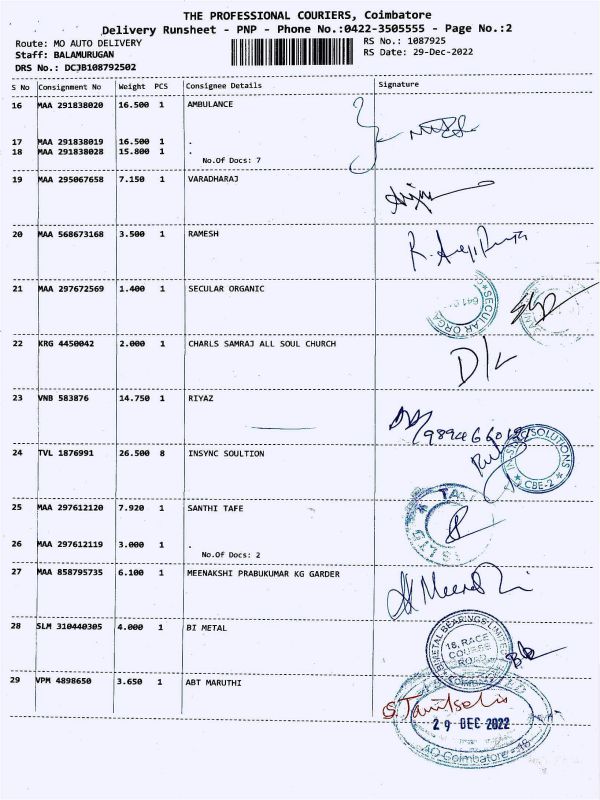 THE PROFESSIONAL COURIERS, Coimbatore
Delivery Runsheet - PNP - Phone No.:0422-3505555 - Page No.:2
Route: MO AUTO DELIVERY
RS No.: 1087925
Staff: BALAMURUGAN
RS Date: 29-Dec-2022
DRS No.: DCJB108792502
S No Consignment No Weight PCS Consignee Details Signature
16 MAA 291838020 16.500 1 AMBULANCE
17 MAA 291838019 16.500 1 .
18 MAA 291838028 15.800 1 .
No.Of Docs: 7
19 MAA 295067658 7.150 1 VARADHARAJ
20 MAA 568673168 3.500 1 RAMESH
21 MAA 297672569 1.400 1 SECULAR ORGANIC
SECULAR ORGA
22 KRG 4450042 2.000 1 CHARLS SAMRAJ ALL SOUL CHURCH
D/L
23 VNB 583876 14.750 1 RIYAZ
24 TVL 1876991 26.500 8 INSYNC SOULTION
SOLUTIONS
CBE-2
25 MAA 297612120 7.920 1 SANTHI TAFE
26 MAA 297612119 3.000 1 .
No.Of Docs: 2
27 MAA 858795735 6.100 1 MEENAKSHI PRABUKUMAR KG GARDER
28 SLM 310440305 4.000 1 BI METAL
BIMETAL BEARINGS LIMITED
18, RACE
COURSE
ROAD
29 VPM 4898650 3.650 1 ABT MARUTHI
S. Tamilselvi
29 DEC 2022
AO Coimbatore - 18